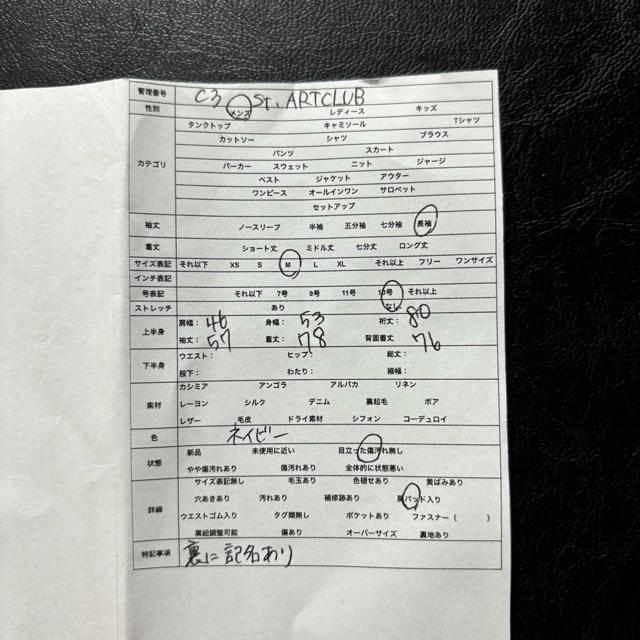 管理番号 C3 ST. ARTCLUB
性別 メンズ レディース キッズ
カテゴリ
タンクトップ キャミソール Tシャツ
カットソー シャツ ブラウス
パンツ スカート
パーカー スウェット ニット ジャージ
ベスト ジャケット アウター
ワンピース オールインワン サロペット
セットアップ
袖丈 ノースリーブ 半袖 五分袖 七分袖 長袖
着丈 ショート丈 ミドル丈 七分丈 ロング丈
サイズ表記 それ以下 XS S M L XL それ以上 フリー ワンサイズ
インチ表記
号表記 それ以下 7号 9号 11号 13号 それ以上
ストレッチ あり なし
上半身
肩幅: 46 身幅: 53 裄丈: 80
袖丈: 57 着丈: 78 背面着丈 76
下半身
ウエスト: ヒップ: 総丈:
股下: わたり: 裾幅:
素材
カシミア アンゴラ アルパカ リネン
レーヨン シルク デニム 裏起毛 ボア
レザー 毛皮 ドライ素材 シフォン コーデュロイ
色 ネイビー
状態
新品 未使用に近い 目立った傷汚れ無し
やや傷汚れあり 傷汚れあり 全体的に状態悪い
詳細
サイズ表記無し 毛玉あり 色褪せあり 黄ばみあり
穴あきあり 汚れあり 補修跡あり 肩パッド入り
ウエストゴム入り タグ類無し ポケットあり ファスナー( )
肩紐調整可能 傷あり オーバーサイズ 裏地あり
特記事項 裏に記名あり